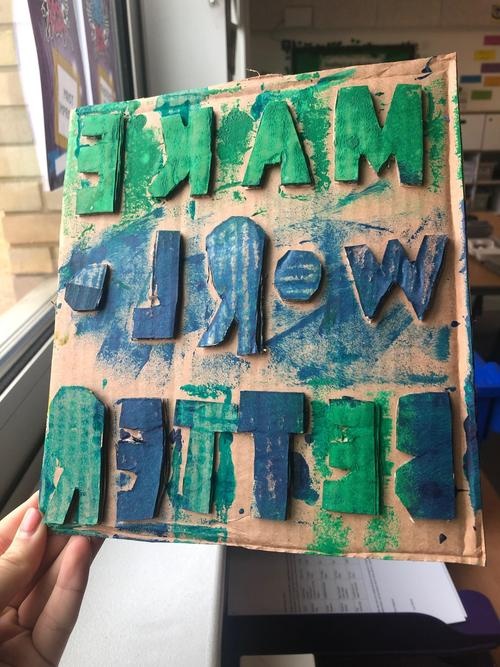 MAKE
WoRLD
BETTER